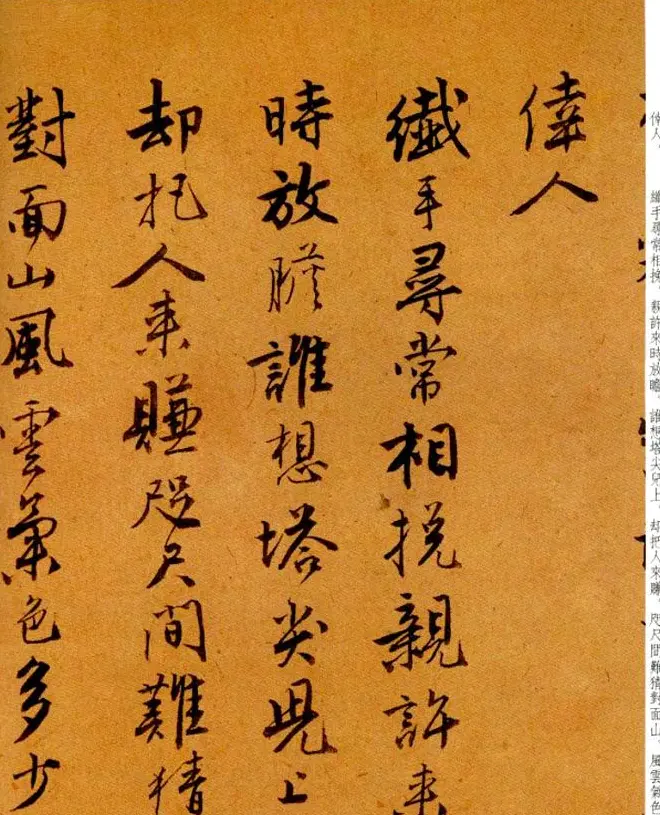 偉人
纖手尋常相挽親許来
時放膽誰想塔尖児上
却把人来賺咫尺間難猜
對面山風雲氣色多少
人。纖手尋常相挽。親許來時放膽。誰想塔尖兒上。却把人來賺。咫尺間難猜對面山。風雲氣色